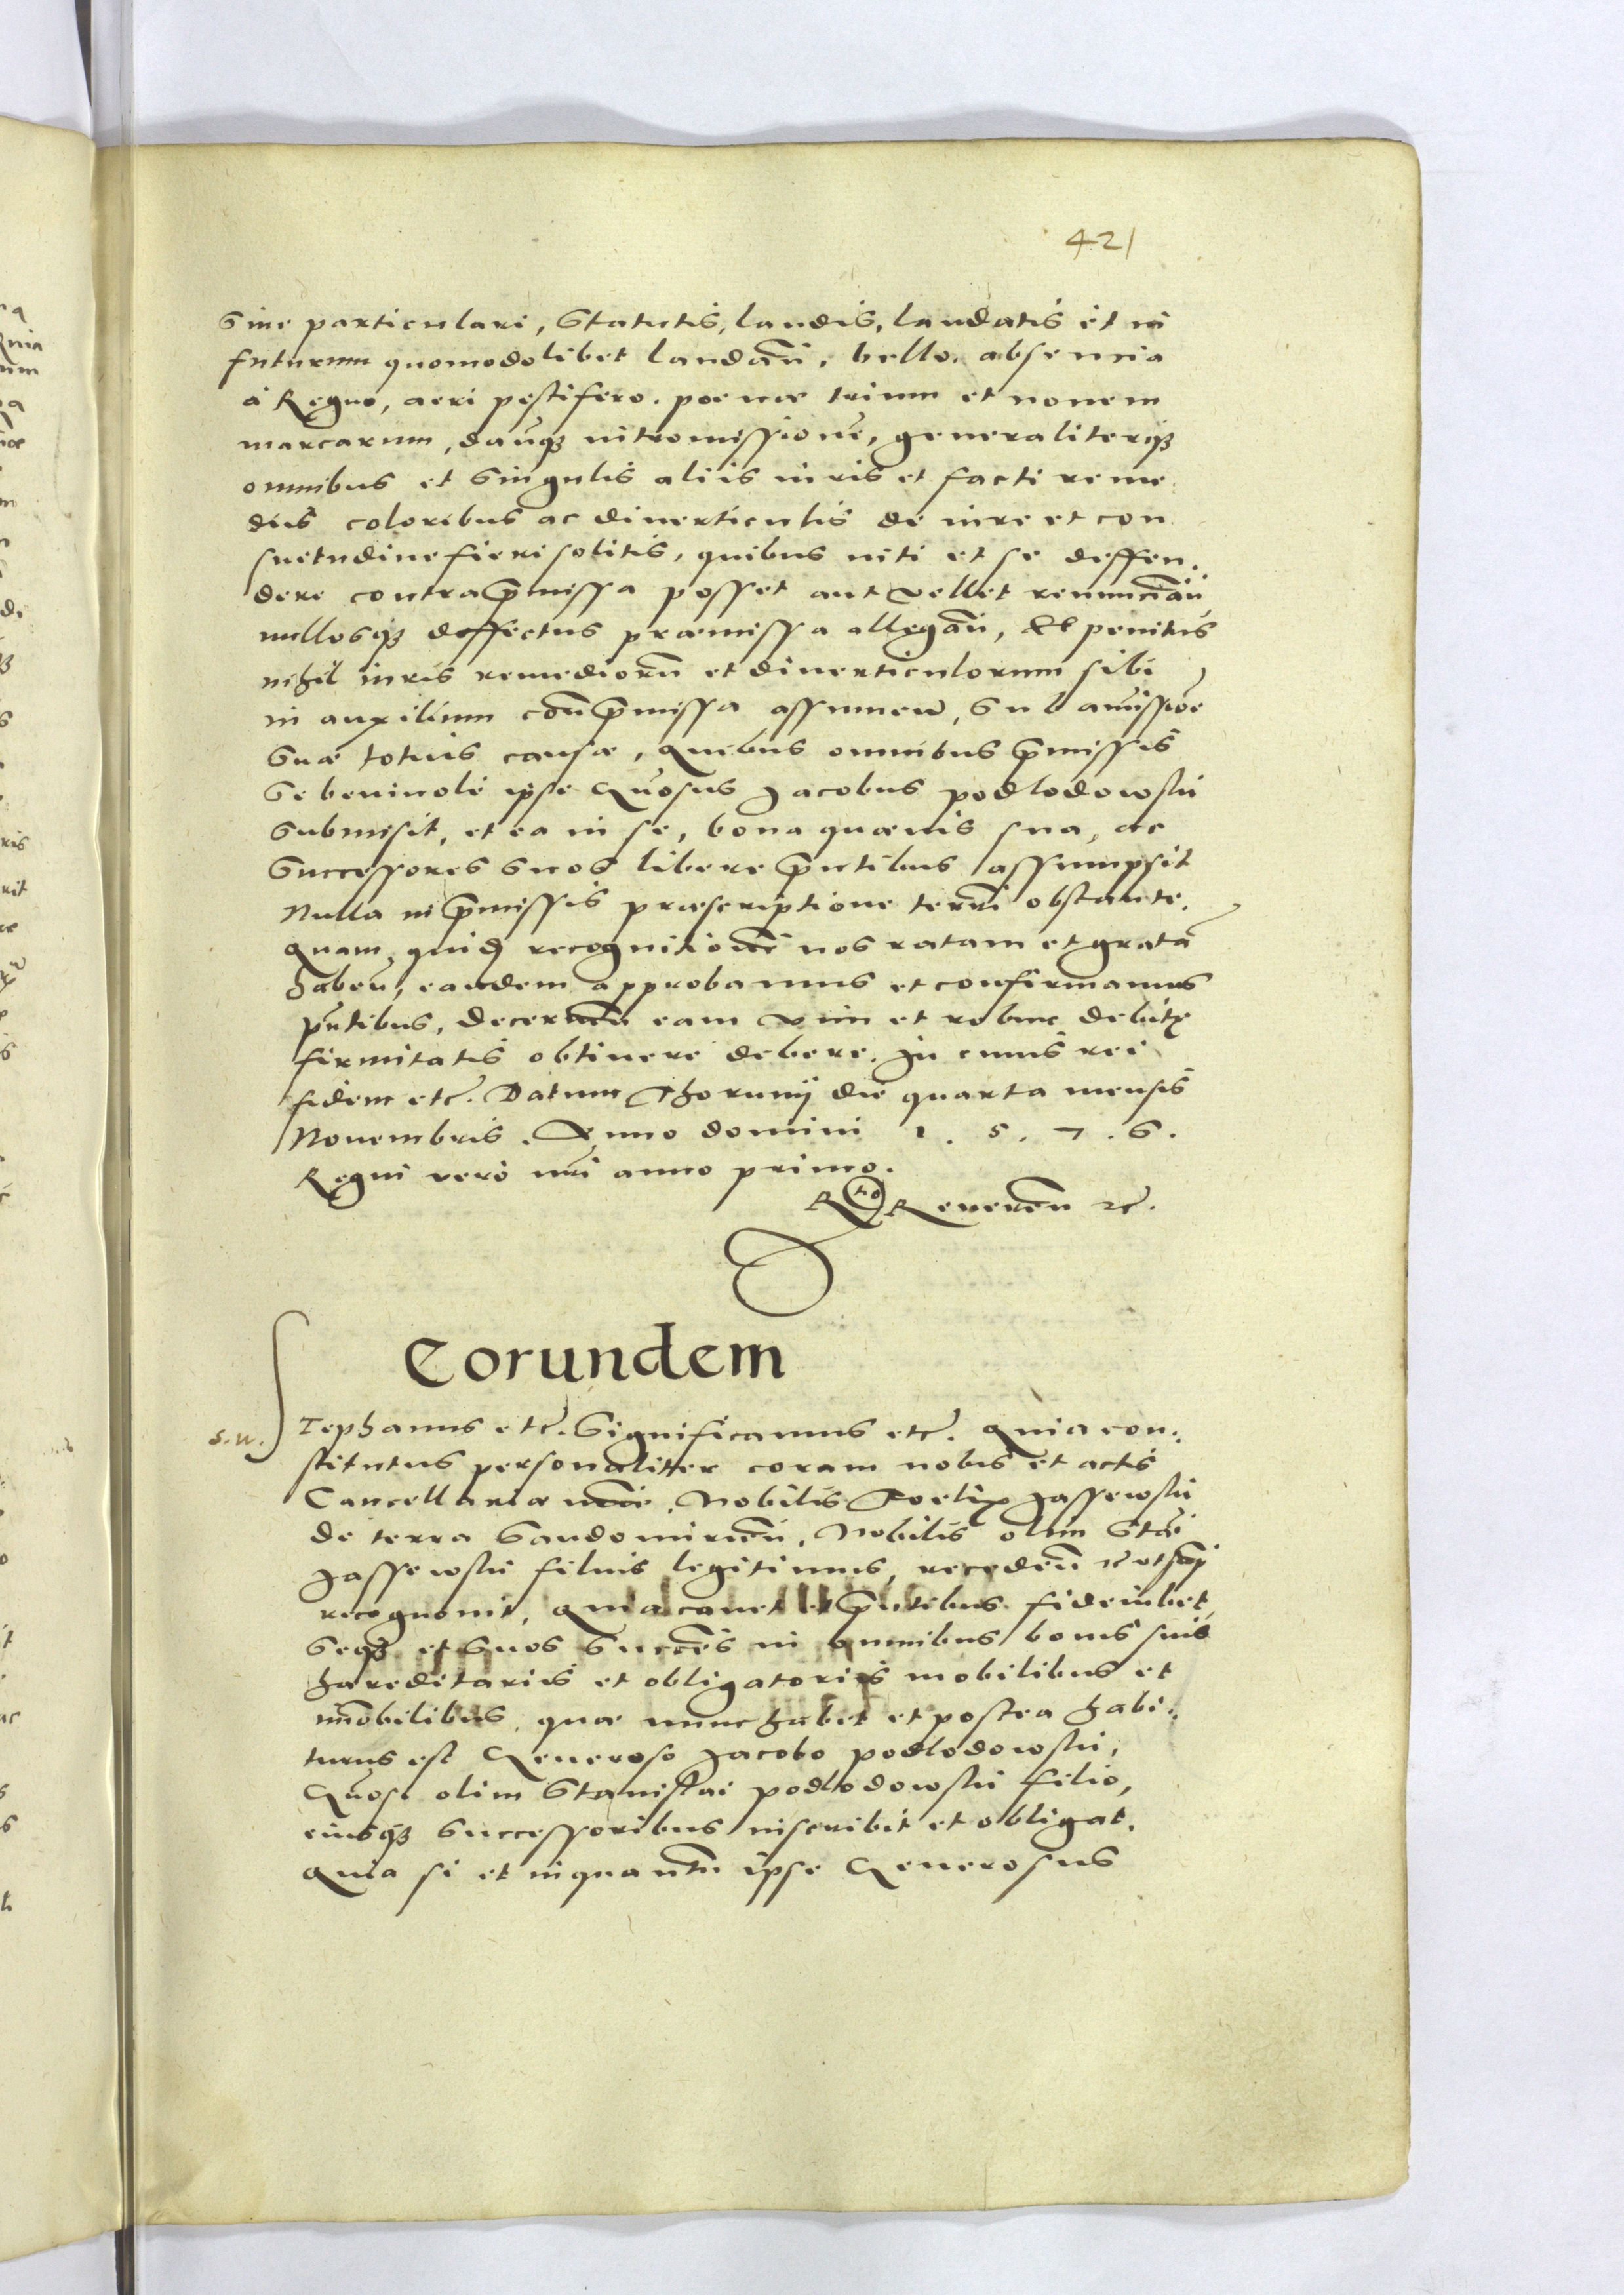 421
siue particulari, Statutis, laudis, laudatis et in
futurum quomodolibet laudan̄, bello, absencia
à Regno, aeri pestifero, poenae trium et nouem
marcarum, dauqȝ intromissione, generaliterqȝ
omnibus et singulis aliis iuris et facti reme
diis coloribus ac diuerticulis de iure et con
suetudine fieri solitis, quibus niti et se deffen.
dere contra p̄missa posset aut vellet renuncian̄
nullosqȝ deffectus praemissa allegan̄, et penitus
nihil iuris remediorū et diuerticulorum sibi
in auxilium con̄ p̄missa assumen̄, sub amissioē
suae totius causae, Quibus omnibus p̄missis
se beniuole ipse Gn̄osus Jacobus podlodowski
submisit, et ea in se, bona quaeuis sua, ac
Successores suos libere p̄ntibus assumpsit
Nulla in p̄missis praescriptione terrī obstante.
Quam quid recognitionē nos ratam et gratā
haben̄, eandem approbamus et confirmamus
pn̄tibus, decernen̄ eam vim et robur debitę
firmitatis obtinere debere. In cuius rei
fidem etc̄. Datum Thorunij die quarta mensis
Nouembris. Anno domini 1. 5. 7. 6.
Regni vero nr̄i anno primo.
Rtio Reueren̄ etc.
Eorundem
s. n.
Stephanus etc̄. Significamus etc̄. Quia con:
stitutus personaliter coram nobis et actis
Cancellariae nr̄ae, Nobilis Foelix Jassewski
de terra Sandomirien̄, Nobilis olim Stā̄i
Jassewski filius legitimus, receden̄ etc
recognouit, Quia cauet et p̄ntibus fideiubet,
seqȝ et suos succēs in omnibus bonis suis
haereditariis et obligatoriis mobilibus et
im̄obilibus, quae nunc habet et postea habi:
turus est Generoso Jacobo podlodowski,
Gn̄osi olim Stanislai podlodowski filio,
eiusqȝ Successoribus inscribit et obligat,
Quia si et inquantū ipse Generosus